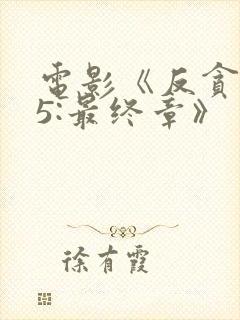 電影《反貪
5:最终章》
徐有霞